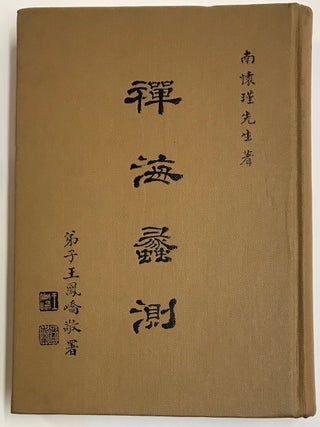 南懷瑾先生著
禪海蠡測
弟子王鳳嶠敬署